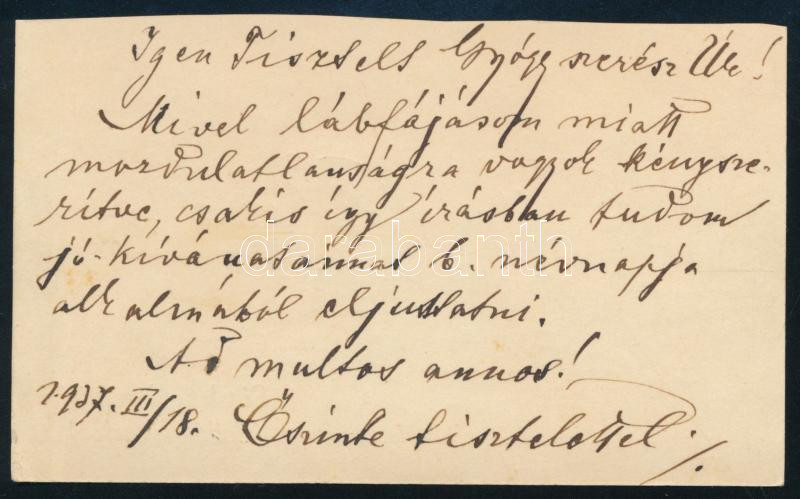 Igen Tisztelt Gyógyszerész Úr!
Mivel lábfájásom miatt
mozdulatlanságra vagyok kénysze-
rítve, csakis így írásban tudom
jó-kívánatainmat b. névnapja
alkalmából eljuttatni.
Ad multos annos!
1937. III/18. Őszinte tisztelettel
darabanth